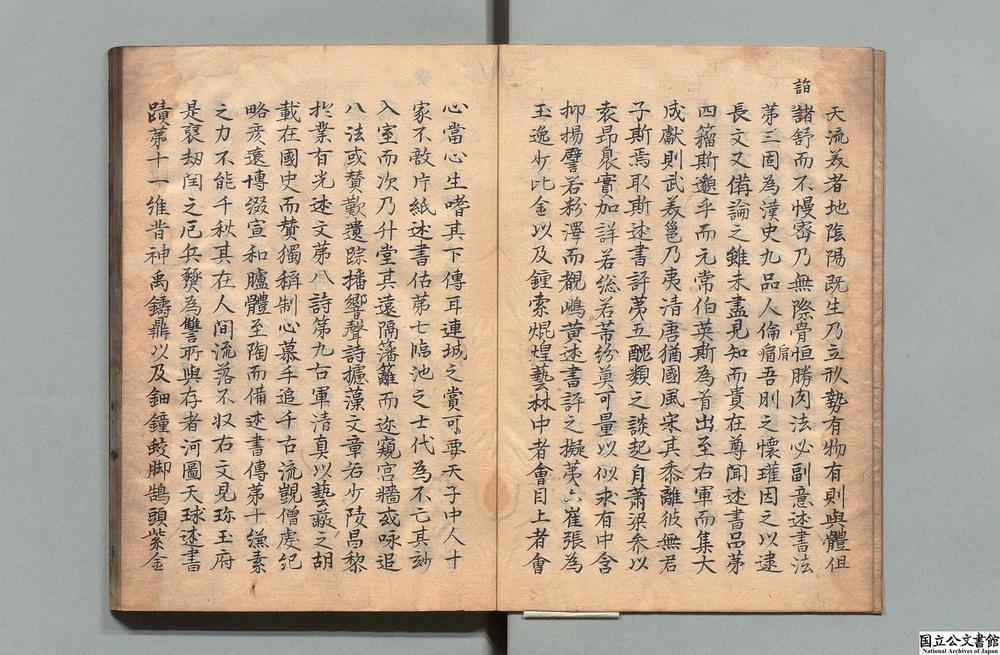 天流義者地陰陽既生乃立形勢有物有則與體俱
詣
諸舒而不慢密乃無際骨恒勝肉法必副意述書法
第三固為漢史九品人倫瘡吾則之懷瓘因之以逮
肩
長文又備論之雖未盡見知而貴在尊聞述書品第
四籀斯邈乎而元常伯英斯為首出至右軍而集大
成獻則武義邕乃夷清唐猶國風宋其黍離彼無君
子斯焉取斯述書評第五醜類之談起自蕭梁參以
袁昂泉實加詳若総若芾紛莫可量以似求有中含
抑揚譬若粉澤而覩嫫黄述書評之擬第六崔張為
玉逸少比金以及鍾索焜煌藝林中者會目上者會
心當心生嗜其下傳耳連城之賞可要天子中人十
家不敵片紙述書估第七臨池之士代為不亡其妙
入室而次乃升堂其遠隔籓籬而迩窺宮牆或咏追
八法或贊歎遺踪播響聲詩攄藻文章若少陵昌黎
扵業有光述文第八詩第九右軍清真以藝蔽之胡
載在國史而贊獨稱制心慕手追千古流覬僧虔紀
略彦遠博綴宣和臚體至陶而備述書傳第十縑素
之力不能千秋其在人間流落不収右文見珎玉府
是裒刼閏之厄兵燹為讐所與存者河圖天球述書
蹟第十一維昔神禹鑄鼎以及鈿鐘鮫脚鵠頭紫金
国立公文書館
National Archives of Japan